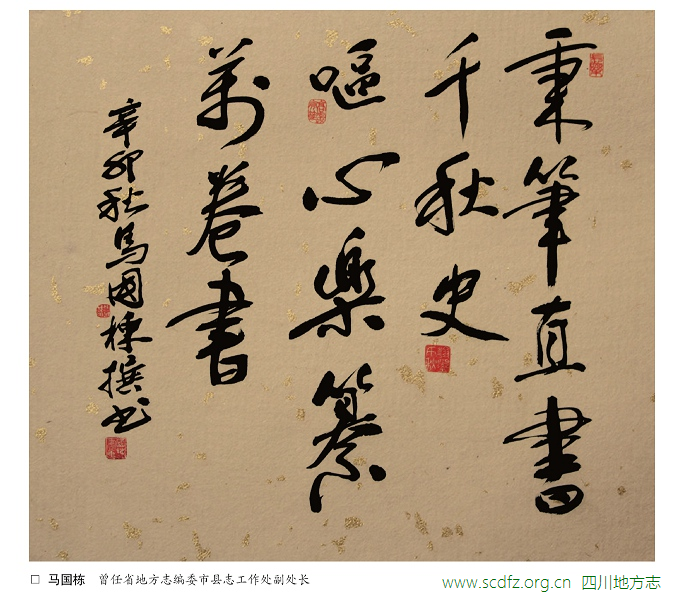 秉筆直書
千秋史
嘔心樂纂
萬卷書
辛卯秋馬國棟撰书
□ 马国栋 曾任省地方志编委市县志工作处副处长
www.scdfz.org.cn 四川地方志